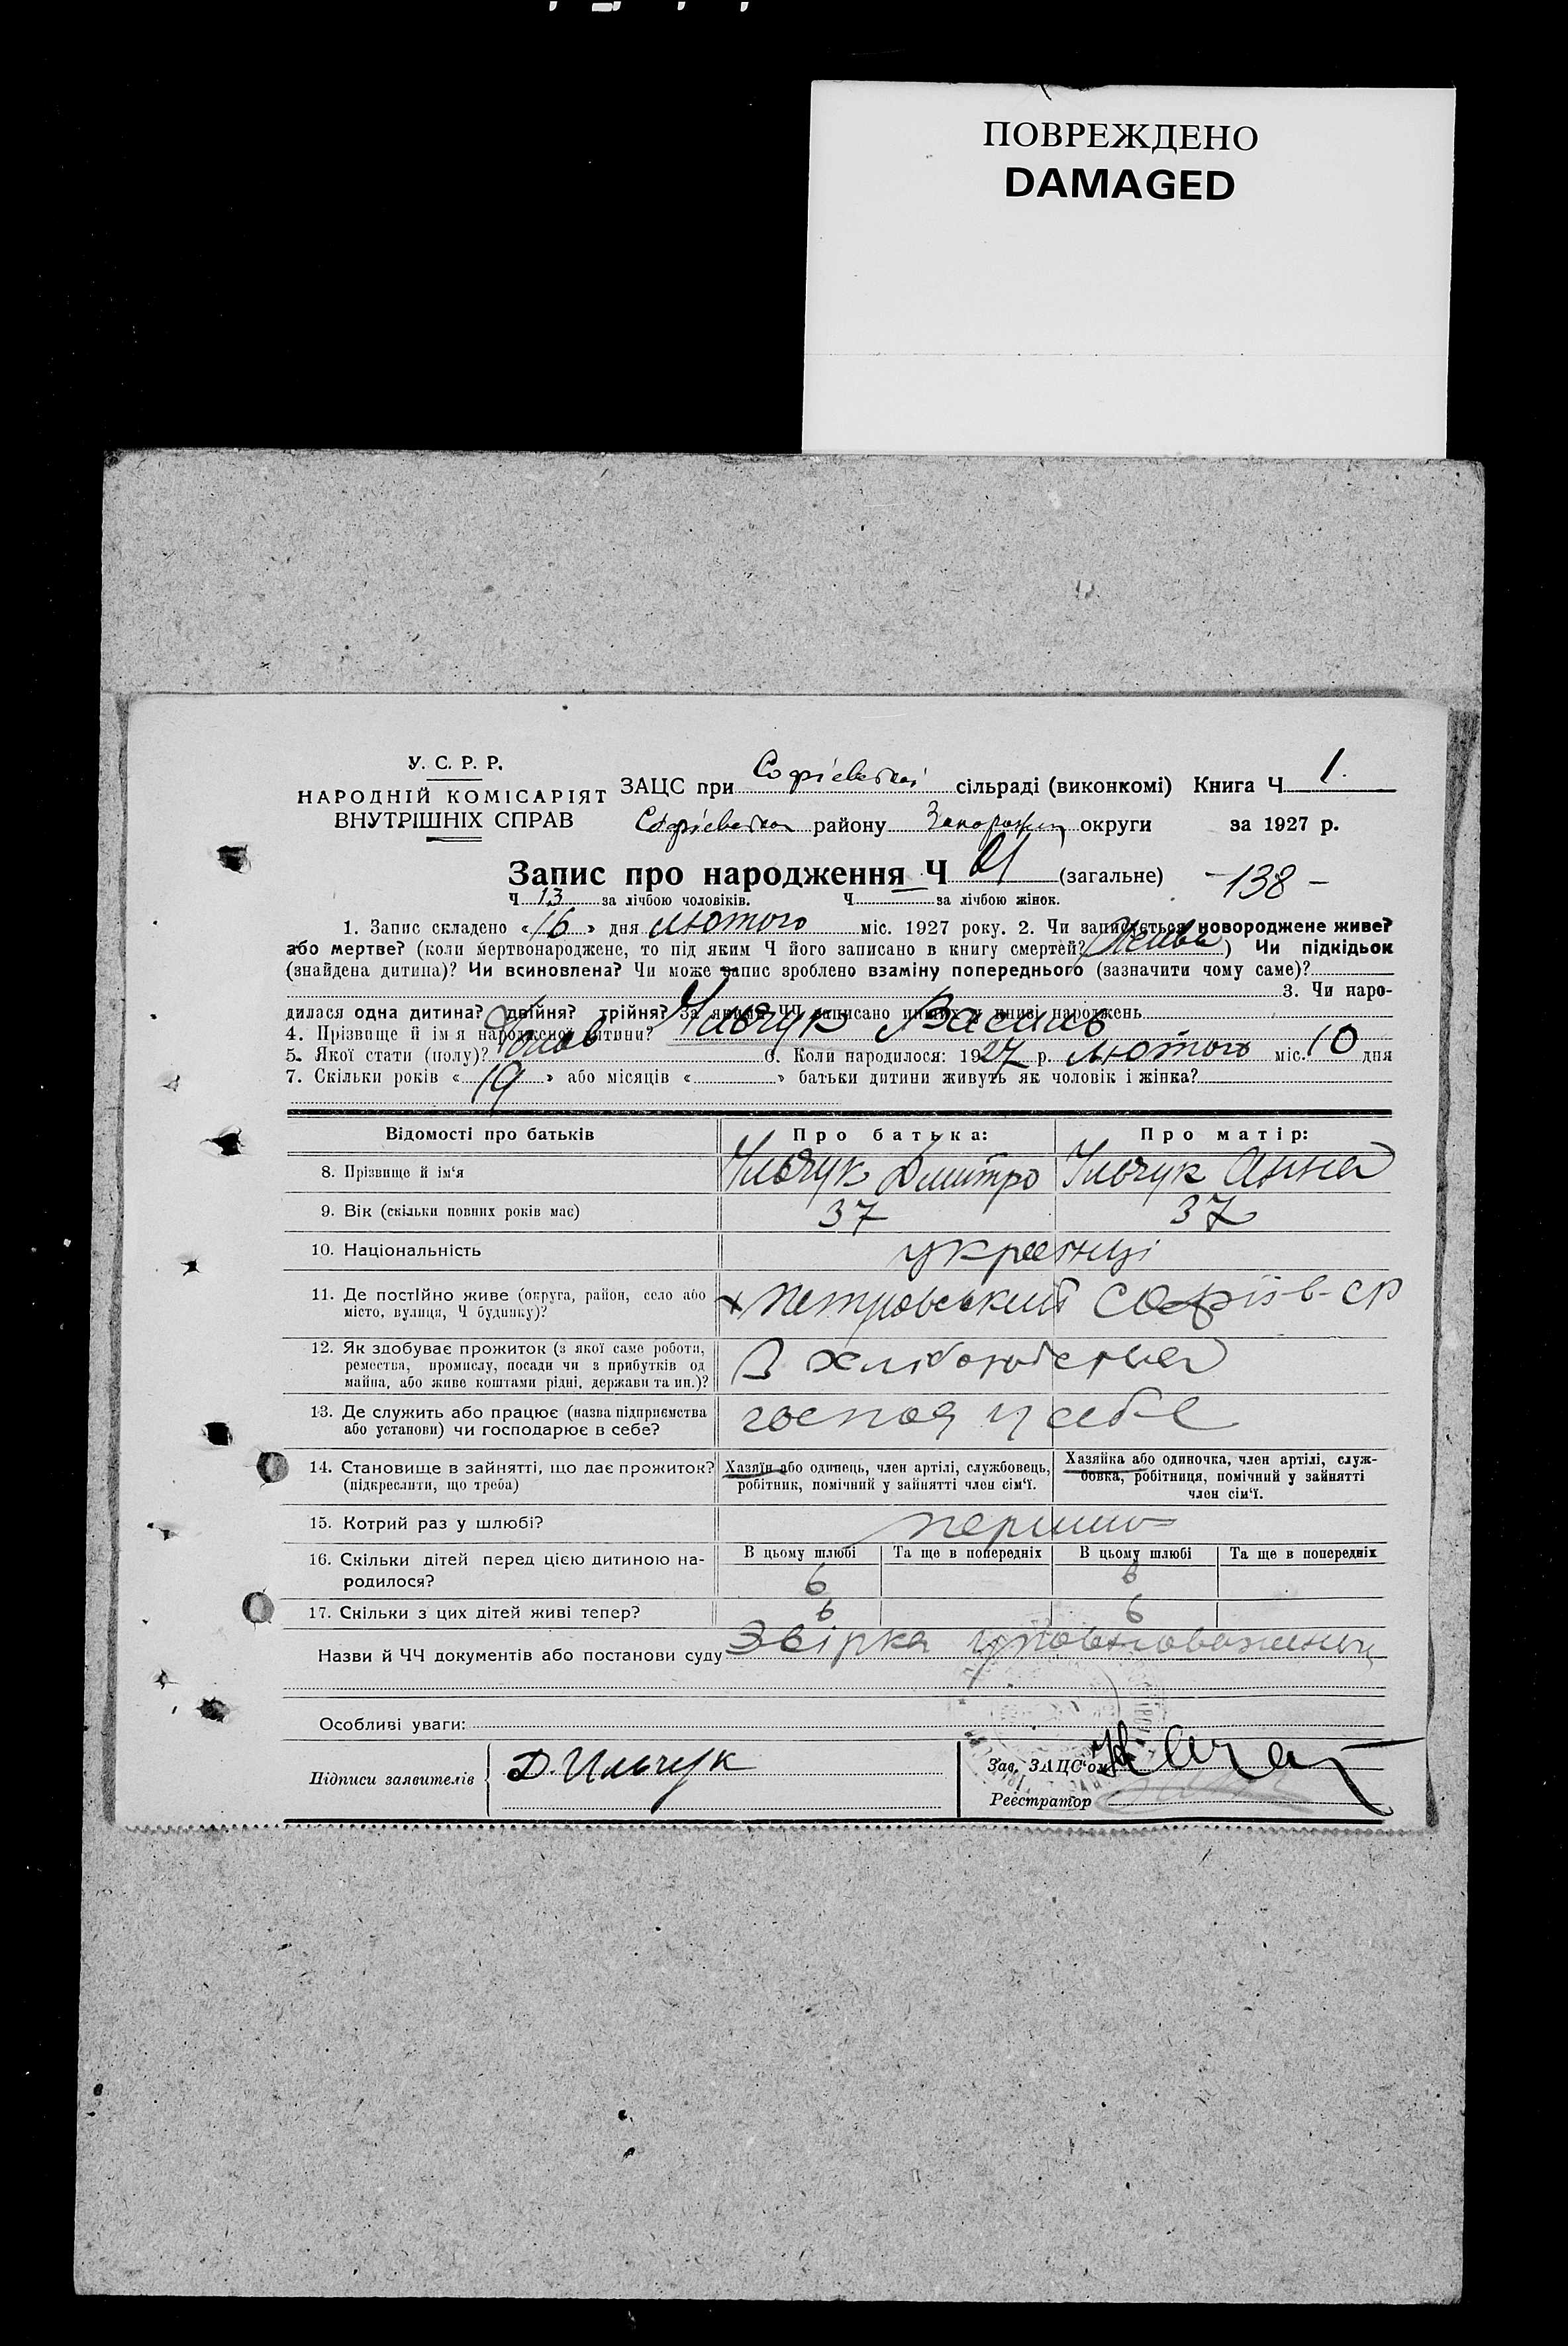 ПОВРЕЖДЕНО
DAMAGED
У. С. Р. Р.
НАРОДНІЙ КОМІСАРІЯТ
ВНУТРІШНІХ СПРАВ
ЗАЦС при Софіевській сільраді (виконкомі) Книга Ч 1.
Софіевском району Запорожц округи за 1927 р.
Запис про народження Ч 21 (загальне) -138-
Ч 13 за лічбою чоловіків. Ч за лічбою жінок.
1. Запис складено « 16 » дня Лютого міс. 1927 року. 2. Чи записується новороджене живе?
або мертве? (коли мертвонароджене, то під яким Ч його записано в книгу смертей? Живе) Чи підкідьок
(знайдена дитина)? Чи всиновлена? Чи може запис зроблено взаміну попереднього (зазначити чому саме)?
3. Чи наро-
дилася одна дитина? двійня? трійня? За якими ЧЧ записано инших у книзі народжень
4. Прізвище й ім'я народженої дитини? Ильчук Василь
5. Якої стати (полу)? Чолов 6. Коли народилося: 1927 р. Лютого міс. 10 дня
7. Скільки років « 19 » або місяців « » батьки дитини живуть як чоловік і жінка?
Відомості про батьків Про батька: Про матір:
8. Прізвище й ім'я Ильчук Дмитро Ильчук Анна
9. Вік (скільки повних років має) 37 37
10. Національність українці
11. Де постійно живе (округа, район, село або х Петровський Софіїв-ср
місто, вулиця, Ч будинку)?
12. Як здобуває прожиток (з якої саме роботи, З хліборобства
ремества, промислу, посади чи з прибутків од
майна, або живе коштами рідні, держави та ин.)?
13. Де служить або працює (назва підприємства господ у себе
або установи) чи господарює в себе?
14. Становище в зайнятті, що дає прожиток? Хазяїн або одинець, член артілі, службовець, Хазяйка або одиночка, член артілі, служ-
(підкреслити, що треба) робітник, помічний у зайнятті член сім'ї. бовка, робітниця, помічний у зайнятті
член сім'ї.
15. Котрий раз у шлюбі? перший
16. Скільки дітей перед цією дитиною на- В цьому шлюбі Та ще в попередніх В цьому шлюбі Та ще в попередніх
родилося? 6 6
17. Скільки з цих дітей живі тепер? 6 6
Назви й ЧЧ документів або постанови суду Звірка уповноваженим
Особливі уваги:
Підписи заявителів Д. Ильчук Зав. ЗАЦС'ом
Реєстратор